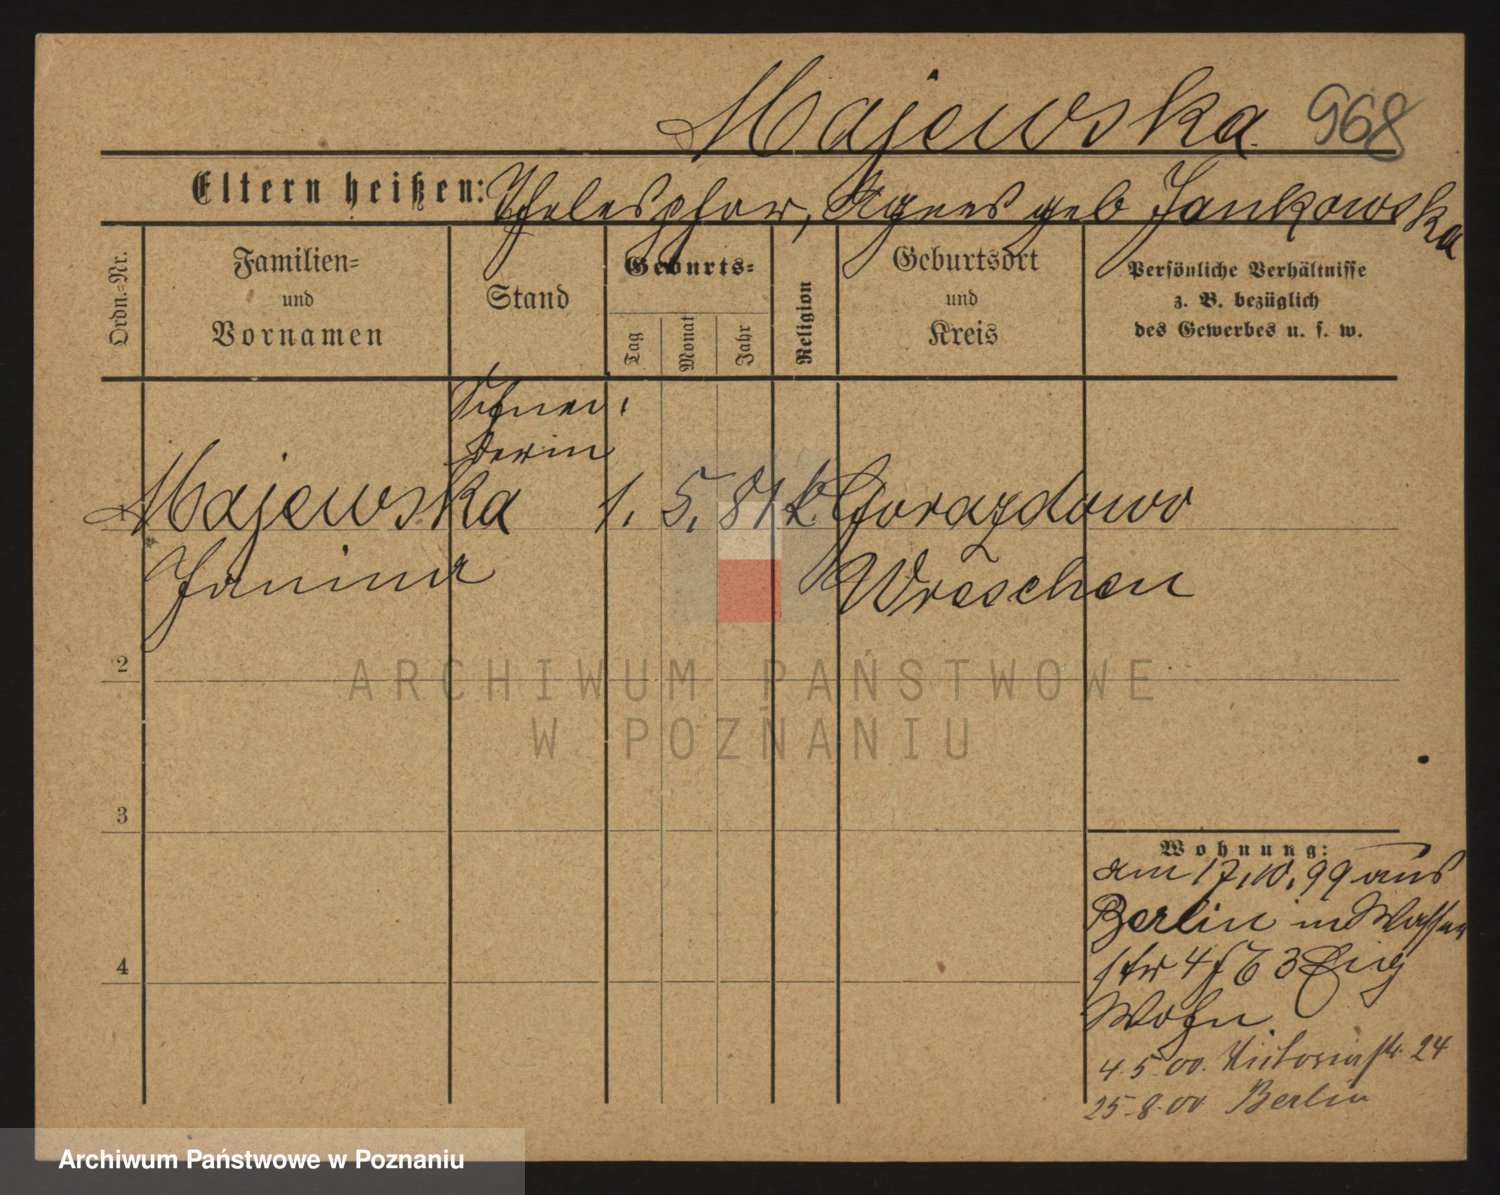 Majewska 968
Eltern heißen: Thelesphor, Agnes geb Jankowska
Ordn.=Nr.
Familien=
und
Vornamen
Stand
Geburts=
Tag
Monat
Jahr
Religion
Geburtsort
und
Kreis
Persönliche Verhältnisse
z. B. bezüglich
des Gewerbes u. s. w.
Schnei
derin
1 Majewska 1. 5. 81 k Gorazdowo
Janina Wreschen
2
ARCHIWUM PAŃSTWOWE
W POZNANIU
3
4
Wohnung:
am 17.10.99 aus
Berlin in Wasser
str 4 3 Eig
Wohn
4.5.00. Victoriastr. 24
25-8.00 Berlin
Archiwum Państwowe w Poznaniu